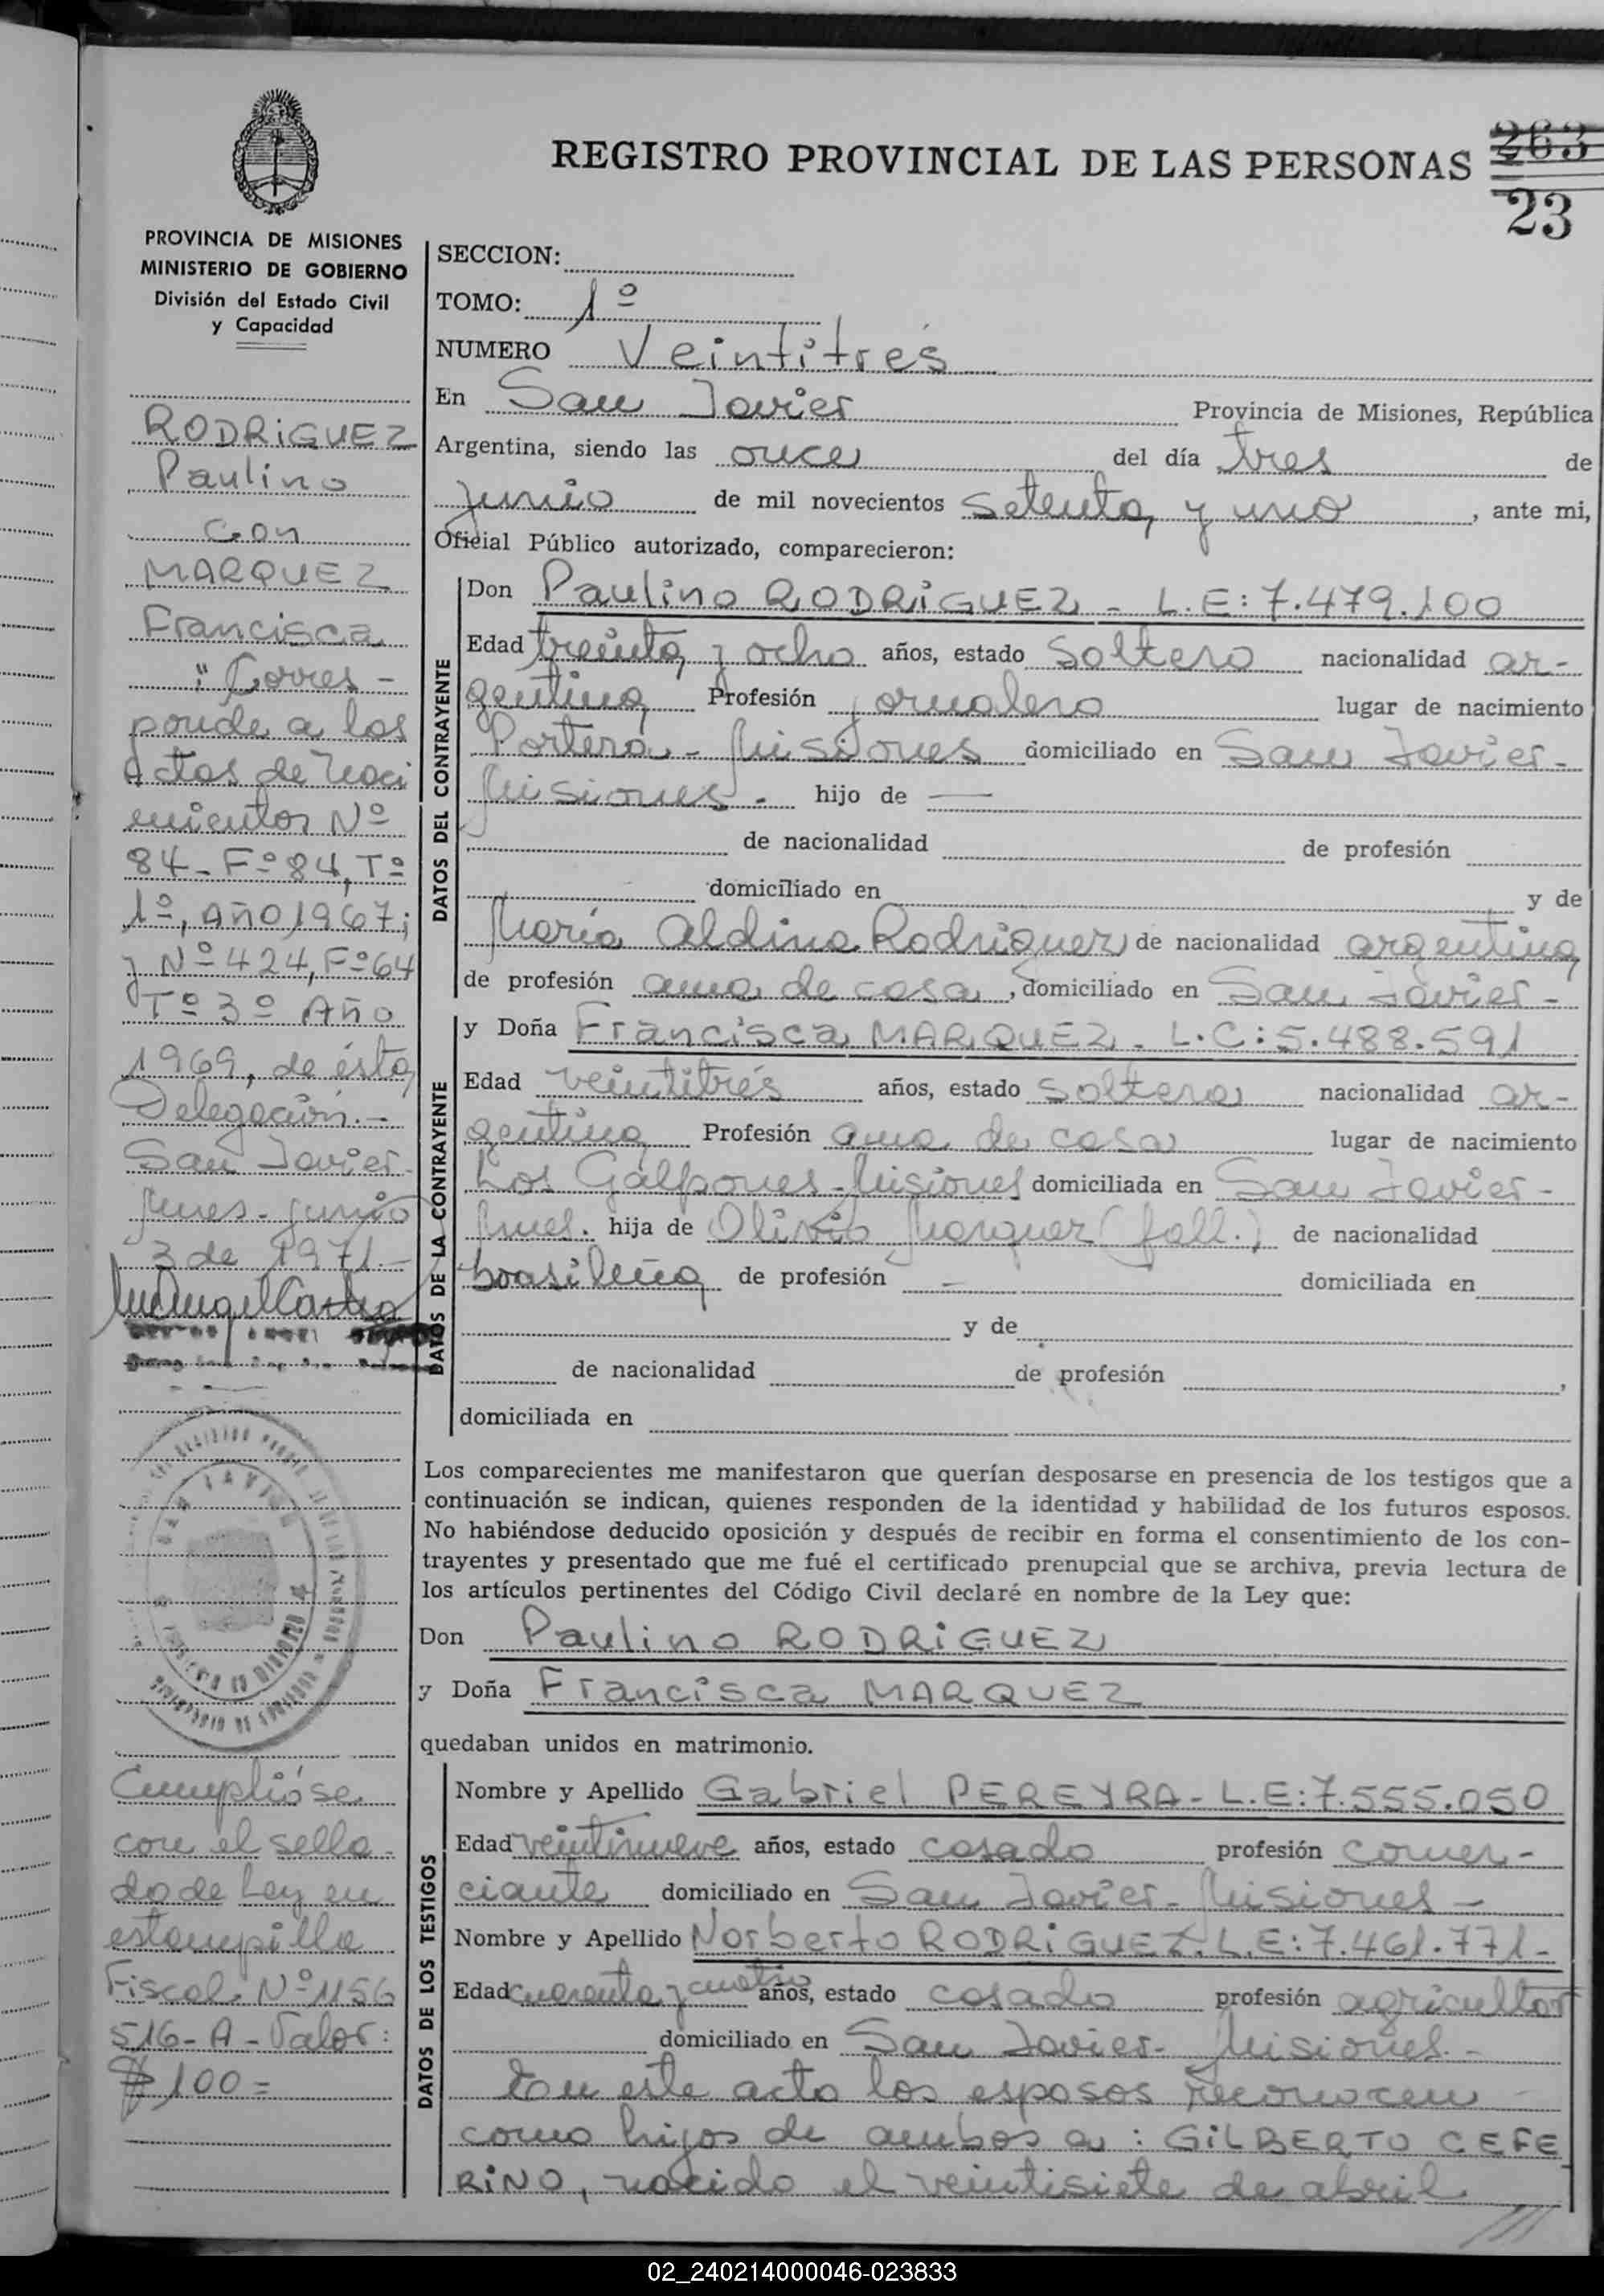 REGISTRO PROVINCIAL DE LAS PERSONAS
263
23
PROVINCIA DE MISIONES
MINISTERIO DE GOBIERNO
División del Estado Civil
y Capacidad
RODRIGUEZ
Paulino
con
MARQUEZ
Francisca
" Corres-
ponde a las
Actas de Naci
mientos Nº
84-Fº84, Tº
1º, Año 1967;
y Nº424, Fº64
Tº 3º Año
1969, de ésta
Delegación.-
San Javier-
Mnes. junio
3 de 1971.-
SAN JAVIER
Cumplióse
con el sella-
do de Ley en
estampilla
Fiscal Nº1156
516-A-Valor:
$ 100=
SECCION:
TOMO: 1º
NUMERO Veintitrés
En San Javier Provincia de Misiones, República
Argentina, siendo las once del día tres de
junio de mil novecientos setenta y uno, ante mi,
Oficial Público autorizado, comparecieron:
DATOS DEL CONTRAYENTE
Don Paulino RODRIGUEZ - L.E: 7.479.100
Edad treinta y ocho años, estado soltero nacionalidad ar-
gentina Profesión jornalero lugar de nacimiento
Portera - Misiones domiciliado en San Javier-
Misiones. hijo de —
de nacionalidad de profesión
domiciliado en y de
María Aldina Rodriguez de nacionalidad argentina
de profesión ama de casa, domiciliado en San Javier-
DATOS DE LA CONTRAYENTE
y Doña Francisca MARQUEZ - L.C: 5.488.591
Edad veintitrés años, estado soltera nacionalidad ar-
gentina Profesión ama de casa lugar de nacimiento
Los Galpones-Misiones domiciliada en San Javier-
Mnes. hija de Olivio Marquez (fall.) de nacionalidad
brasileña de profesión — domiciliada en
y de
de nacionalidad de profesión ,
domiciliada en
Los comparecientes me manifestaron que querían desposarse en presencia de los testigos que a
continuación se indican, quienes responden de la identidad y habilidad de los futuros esposos.
No habiéndose deducido oposición y después de recibir en forma el consentimiento de los con-
trayentes y presentado que me fué el certificado prenupcial que se archiva, previa lectura de
los artículos pertinentes del Código Civil declaré en nombre de la Ley que:
Don Paulino RODRIGUEZ
y Doña Francisca MARQUEZ
quedaban unidos en matrimonio.
DATOS DE LOS TESTIGOS
Nombre y Apellido Gabriel PEREYRA - L.E: 7.555.050
Edad veintinueve años, estado casado profesión comer-
ciante domiciliado en San Javier- Misiones-
Nombre y Apellido Norberto RODRIGUEZ. L.E: 7.461.771-
Edad cuarenta y cuatro años, estado casado profesión agricultor
domiciliado en San Javier- Misiones.-
En este acto los esposos reconocen
como hijos de ambos a: GILBERTO CEFE
RINO, nacido el veintisiete de abril
02_240214000046-023833